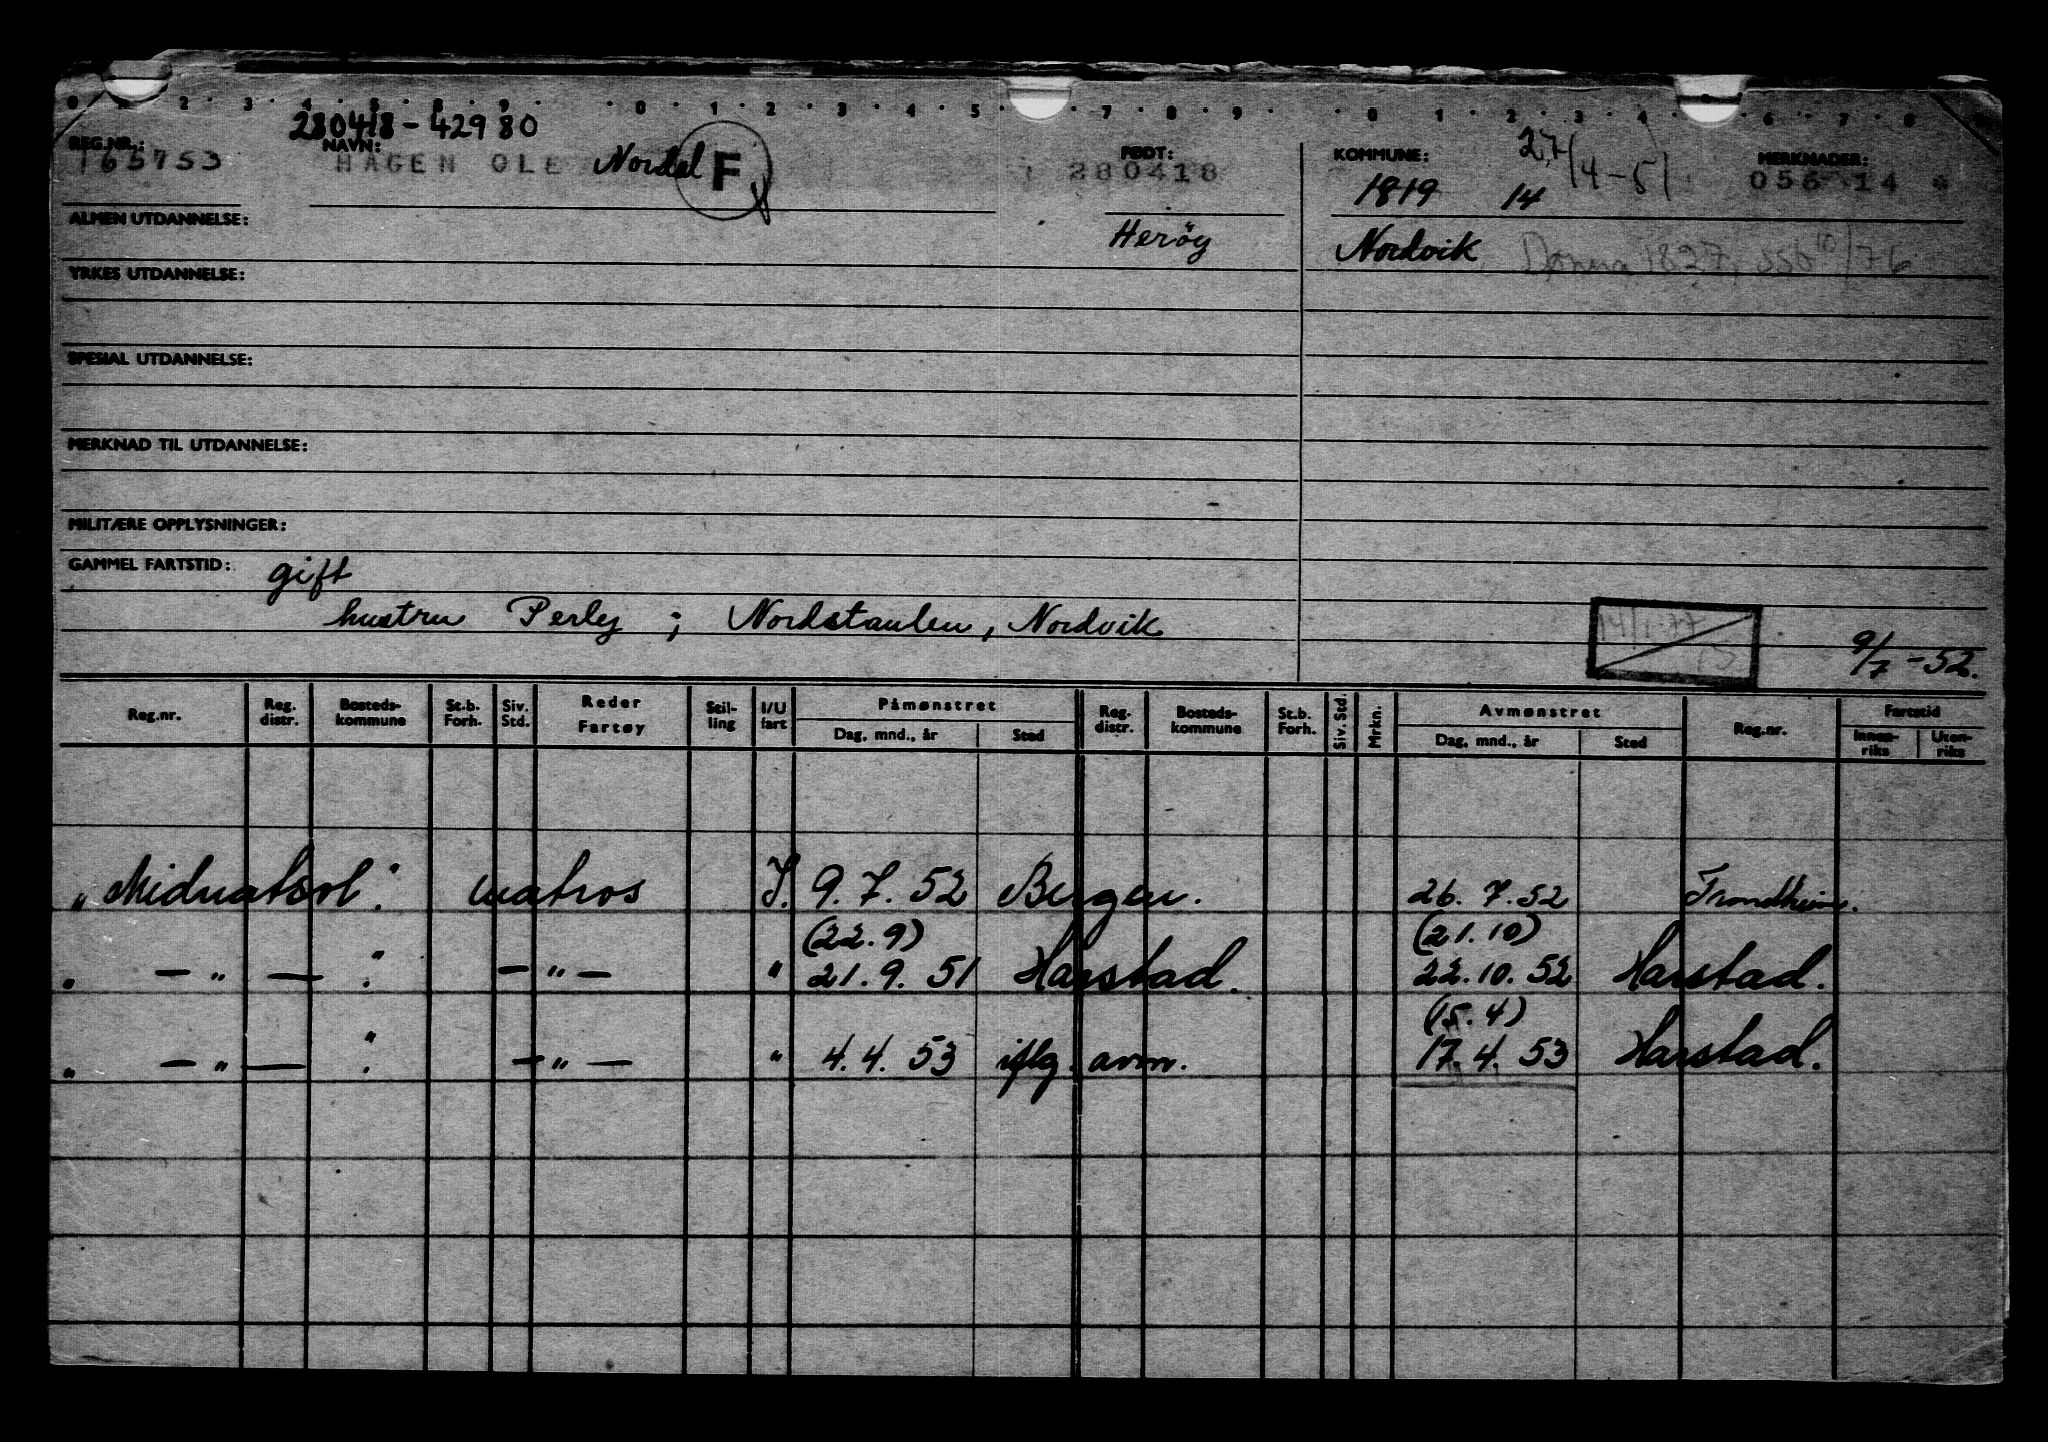 0 · 1 · 2 · 3 · 4 · 5 · 6 · 9 · · 0 · 1 · 2 · 3 · 4 · 5 · · 7 · 8 · 9 · · 0 · 1 · 2 · 3 · 4 · · 6 · 7 · 8
280418 - 42980
REG.NR.: NAVN: FØDT: KOMMUNE: 27/4-51 MERKNADER:
165753 HAGEN OLE Nordal F 280418 1819 14 056 14 *
ALMEN UTDANNELSE: Herøy Nordvik Dønna 1827, ssb 10/76
YRKES UTDANNELSE:
SPESIAL UTDANNELSE:
MERKNAD TIL UTDANNELSE:
MILITÆRE OPPLYSNINGER:
GAMMEL FARTSTID: gift
hustru Perley ; Nordstaulen, Nordvik 14/1-77
9/7 - 52.
Reg.nr. Reg. distr. Bosteds-kommune St.b. Forh. Siv. Std. Reder Fartøy Stil-ling I/U fart Påmønstret Dag, mnd., år Sted Reg. distr. Bosteds-kommune St.b. Forh. Siv. Std. Mrkn. Avmønstret Dag, mnd., år Sted Reg.nr. Fartstid Innen-riks Uten-riks
„Midnatsol". matros I. 9. 7. 52 Bergen. 26. 7. 52 Trondheim.
(22. 9) (21. 10)
„ — „ — ". — " — " 21. 9. 51 Harstad. 22. 10. 52 Harstad.
(15. 4)
„ — „ — ". — „ — " 4. 4. 53 iflg. avm. 17. 4. 53 Harstad.